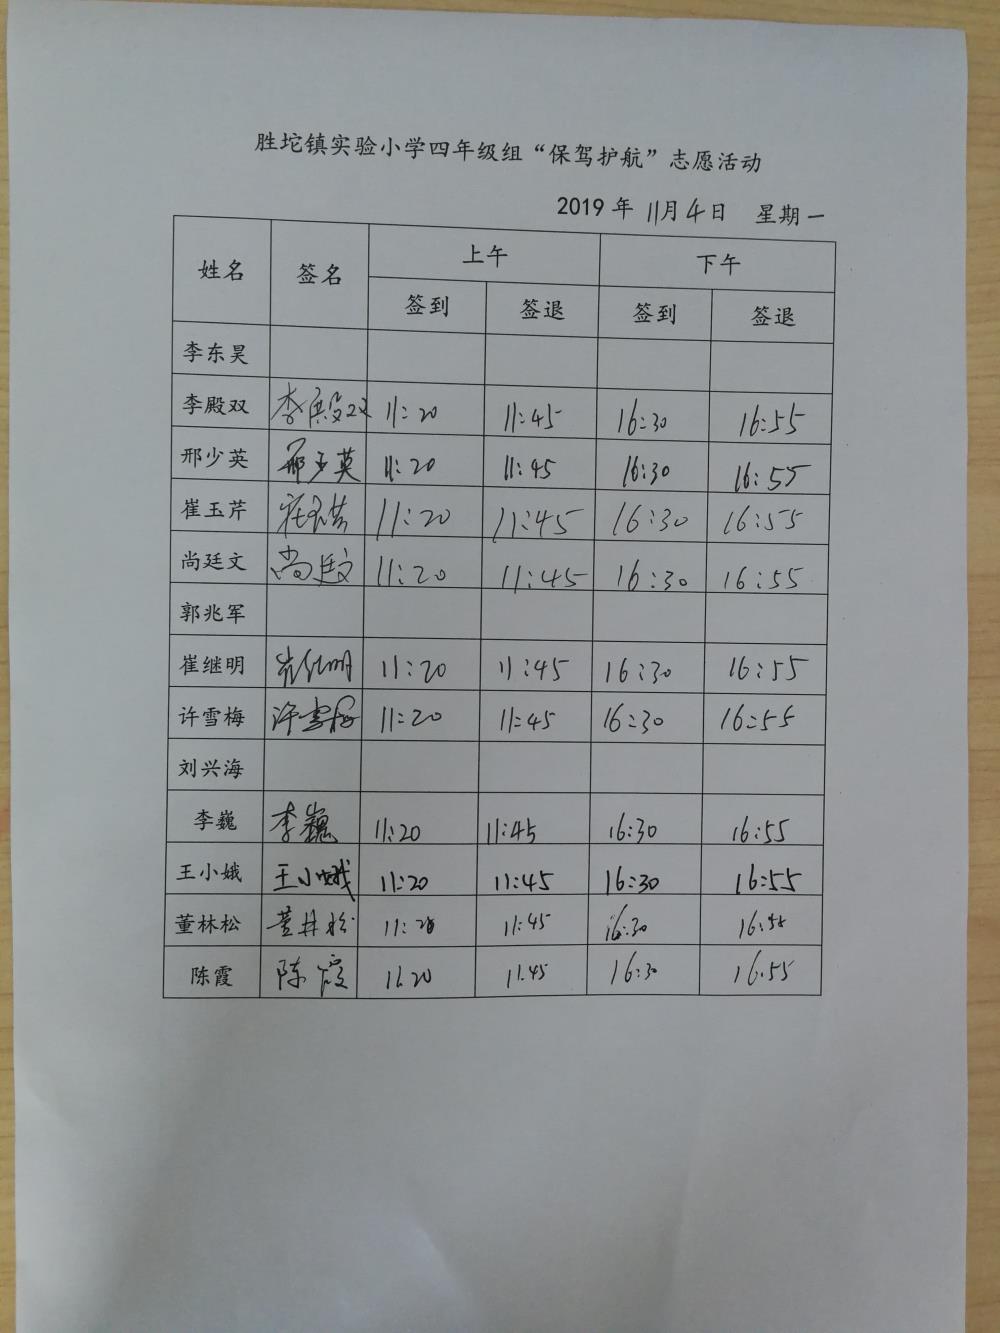 胜坨镇实验小学四年级组“保驾护航”志愿活动
2019 年 11月 4日 星期一
姓名 签名 上午 下午
签到 签退 签到 签退
李东昊
李殿双 李殿双 11:20 11:45 16:30 16:55
邢少英 邢少英 11:20 11:45 16:30 16:55
崔玉芹 崔玉芹 11:20 11:45 16:30 16:55
尚廷文 尚廷文 11:20 11:45 16:30 16:55
郭兆军
崔继明 崔继明 11:20 11:45 16:30 16:55
许雪梅 许雪梅 11:20 11:45 16:30 16:55
刘兴海
李巍 李巍 11:20 11:45 16:30 16:55
王小娥 王小娥 11:20 11:45 16:30 16:55
董林松 董林松 11:20 11:45 16:30 16:55
陈霞 陈霞 11.20 11.45 16:30 16.55